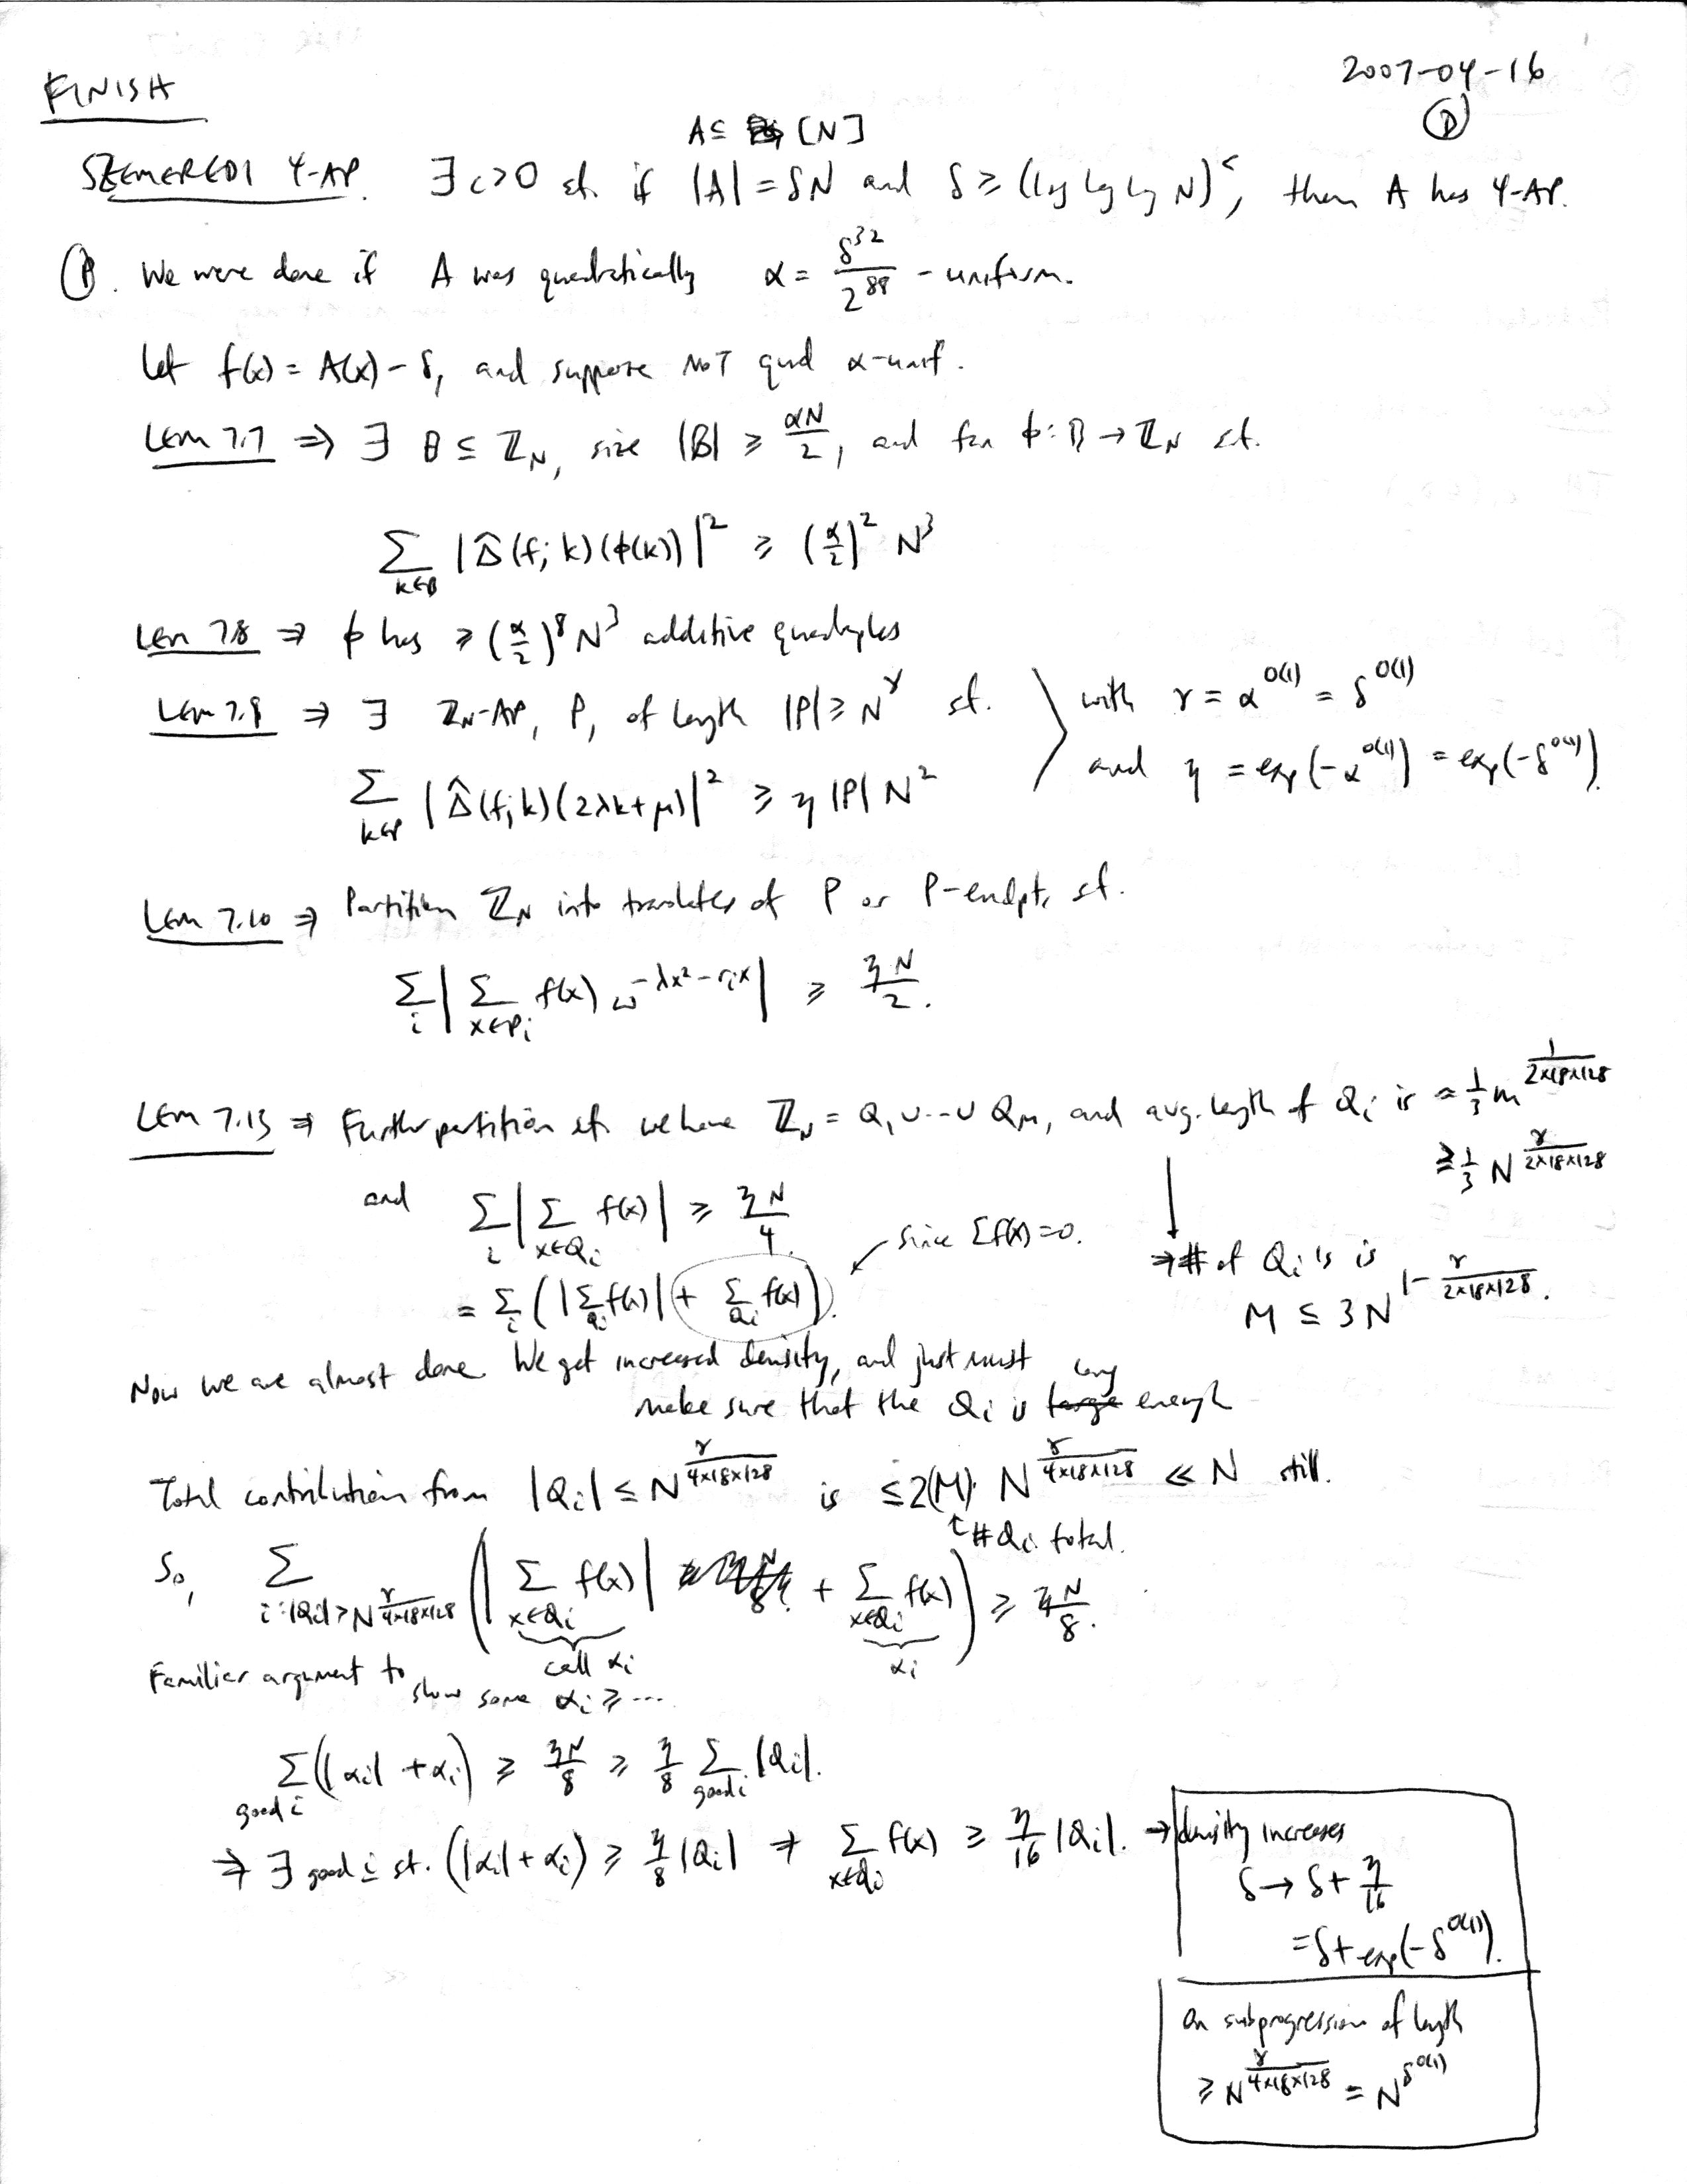 2007-04-16
①
FINISH
A ⊆ [N]
SZEMEREDI 4-AP. ∃ c>0 st. if |A| = δN and δ ≥ (log log log N)^c, then A has 4-AP.
Ⓟ. We were done if A was quadratically α = δ^32 / 2^88 - uniform.
Let f(x) = A(x) - δ, and suppose NOT quad α-unif.
Lem 7.7 ⇒ ∃ B ⊆ ℤ_N, size |B| ≥ αN/2, and fcn φ: B → ℤ_N st.
Σ_{k∈B} |Δ̂(f; k)(φ(k))|² ≥ (α/2)² N³
Lem 7.8 ⇒ φ has ≥ (α/2)^8 N³ additive quadruples
Lem 7.9 ⇒ ∃ ℤ_N-AP, P, of length |P| ≥ N^γ st. with γ = α^{O(1)} = δ^{O(1)}
Σ_{k∈P} |Δ̂(f;k)(2λk+μ)|² ≥ η |P| N² and η = exp(-α^{O(1)}) = exp(-δ^{O(1)}).
Lem 7.10 ⇒ Partition ℤ_N into translates of P or P-endpt, st.
Σ_i | Σ_{x∈P_i} f(x) ω^{-λx²-r_i x} | ≥ ηN/2.
Lem 7.13 ⇒ Further partition st. we have ℤ_N = Q_1 ∪ ··· ∪ Q_M, and avg. length of Q_i is ≈ 1/3 m^{1/(2×18×128)}
≥ 1/3 N^{γ/(2×18×128)}
and Σ_i | Σ_{x∈Q_i} f(x) | ≥ ηN/4.
since Σf(x)=0.
= Σ_i ( | Σ_{Q_i} f(x) | + Σ_{Q_i} f(x) ).
⇒ # of Q_i's is
M ≤ 3N^{1 - γ/(2×18×128)}.
Now we are almost done. We get increased density, and just must
make sure that the Q_i is long enough
Total contribution from |Q_i| ≤ N^{γ/(4×18×128)} is ≤ 2(M)· N^{γ/(4×18×128)} ≪ N still.
↑ # Q_i total.
So, Σ_{i:|Q_i|>N^{γ/(4×18×128)}} ( | Σ_{x∈Q_i} f(x) | + Σ_{x∈Q_i} f(x) ) ≥ ηN/8.
call α_i α_i
Familiar argument to show some α_i ≥ ...
Σ_{good i} (|α_i| + α_i) ≥ ηN/8 ≥ η/8 Σ_{good i} |Q_i|.
⇒ ∃ good i st. (|α_i| + α_i) ≥ η/8 |Q_i| ⇒ Σ_{x∈Q_i} f(x) ≥ η/16 |Q_i|. → density increases
δ → δ + η/16
= δ + exp(-δ^{O(1)}).
on subprogression of length
≥ N^{γ/(4×18×128)} = N^{δ^{O(1)}}